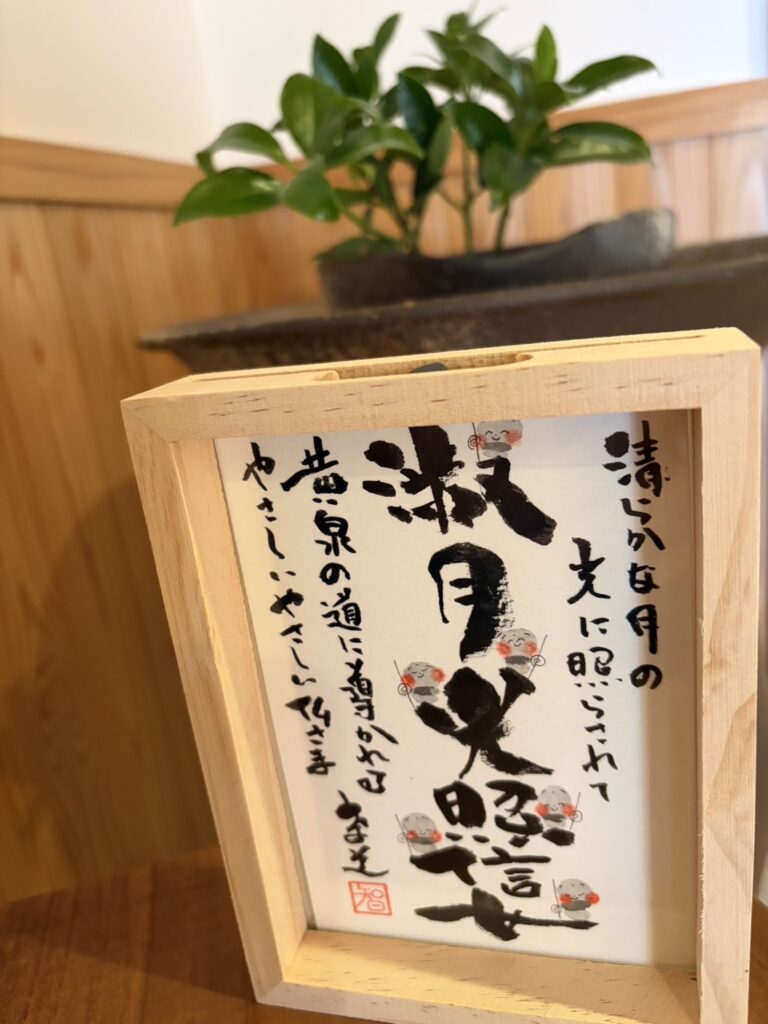 清らかな月の
光に照らされて
淑月光照信女
黄泉の道に導かれし
やさしいやさしい仏さま
智